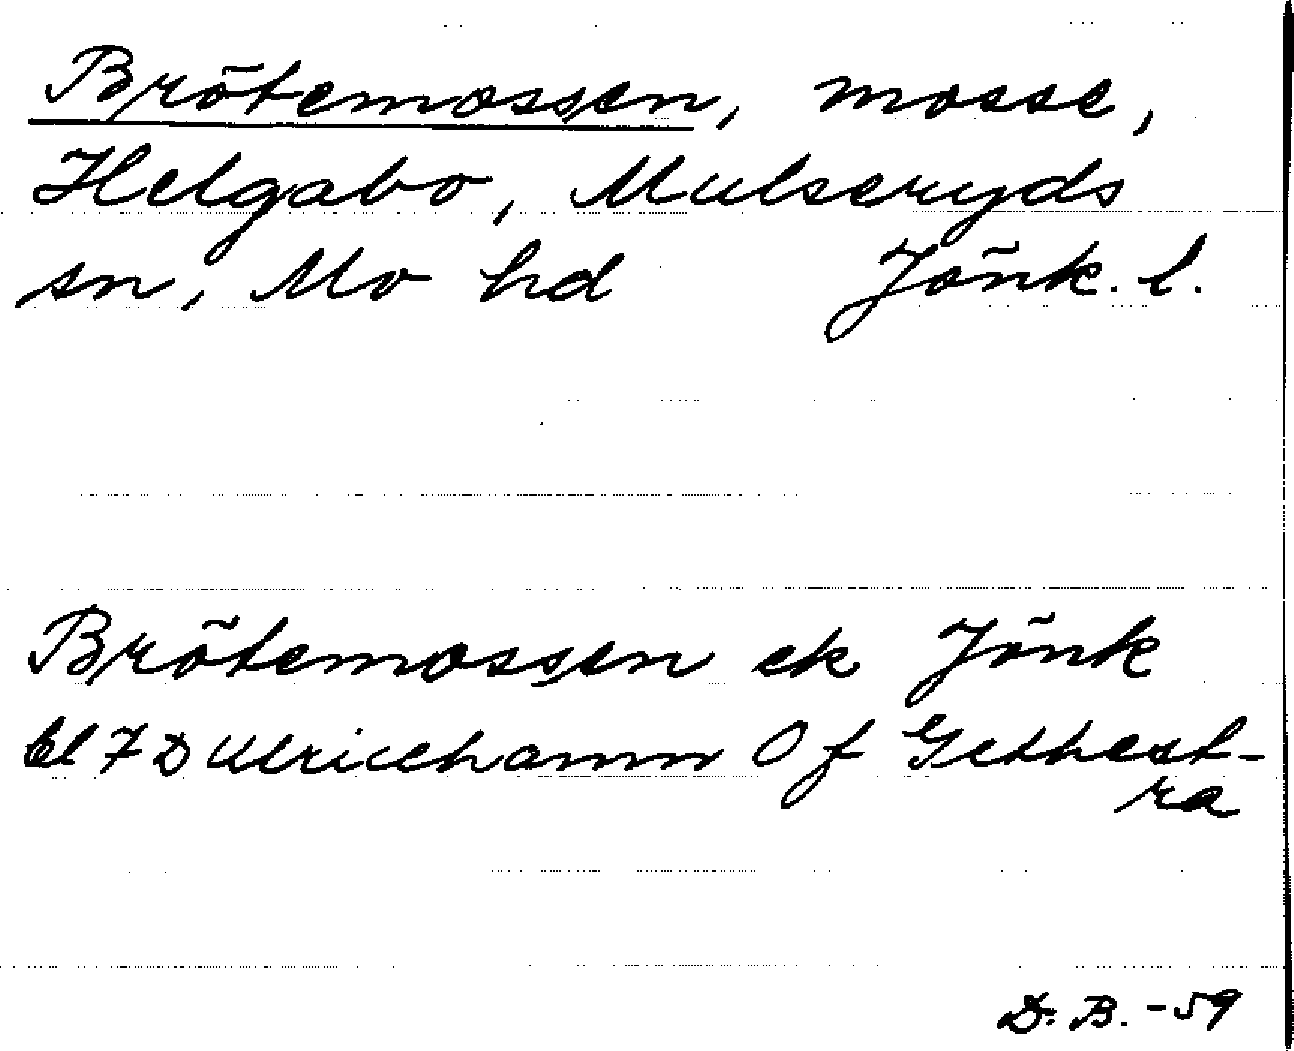 Brötemossen, mosse,
Helgabo, Mulseryds
sn, Mo hd Jönk. l.
Brötemossen ek Jönk
bl 7 D Ulricehamn Of Gethest-
ra
D. B. -59